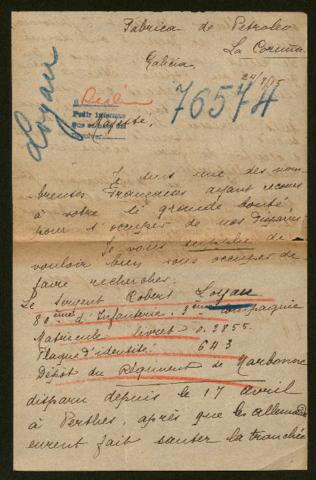 Fábrica de Petróleo
La Coruña
Galicia
Loyau
Berlin
76574
Pedir informes
Majesté,
Je suis une des nom-
breuses Françaises ayant recours
à votre si grande bonté
pour s'occuper de nos disparus
Je vous supplie de
vouloir bien vous occuper de
faire rechercher:
Le sergent Robert Loyau
80ème d'Infanterie. 9ème compagnie
Matricule livret 0.2855.
Plaque d'identité. 643
Dépôt du Régiment de Narbonne
disparu depuis le 17 avril
à Perthes, après que les allemands
eurent fait sauter la tranchée